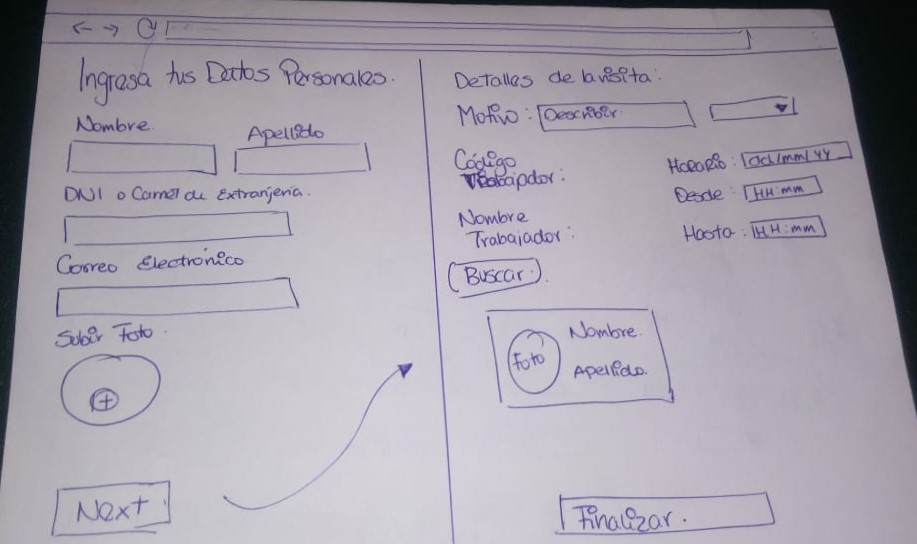 Ingresa tus Datos Personales.
Nombre.
Apellido
DNI o Carnet de Extranjería.
Correo Electrónico
Subir Foto.
Next
Detalles de la visita:
Motivo: Describir.
Código
Trabajador:
Nombre
Trabajador:
Horario: dd/mm/YY
Desde: HH:mm
Hasta: HH:mm
Buscar.
Foto
Nombre.
Apellido.
Finalizar.